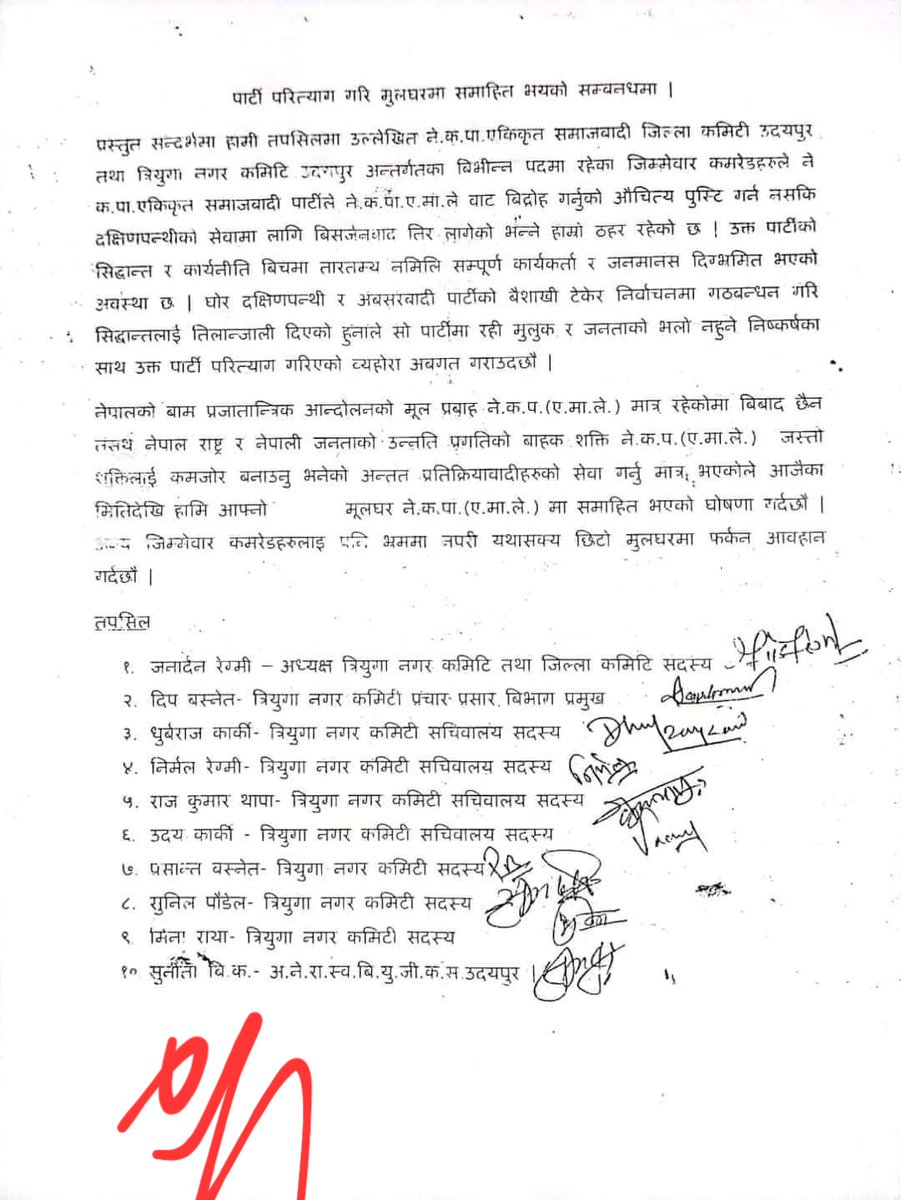 पार्टी परित्याग गरि मुलघरमा समाहित भयको सम्बनधमा |
प्रस्तुत सन्दर्भमा हामी तपसिलमा उल्लेखित ने.क.पा.एकिकृत समाजवादी जिल्ला कमिटी उदयपुर
तथा त्रियुगा नगर कमिटि उदयपुर अन्तर्गतका बिभीन्न पदमा रहेका जिम्मेवार कमरेडहरुले ने
क.पा.एकिकृत समाजवादी पार्टीले ने.क.पा.ए.मा.ले वाट बिद्रोह गर्नुको औचित्य पुस्टि गर्न नसकि
दक्षिणपन्थीको सेवामा लागि बिसर्जनवाद तिर लागेको भन्ने हाम्रो ठहर रहेको छ | उक्त पार्टीको
सिद्वान्त र कार्यनीति बिचमा तारतम्य नमिलि सम्पूर्ण कार्यकर्ता र जनमानस दिग्भ्रमित भएको
अवस्था छ | घोर दक्षिणपन्थी र अबसरवादी पार्टीको बैशाखी टेकेर निर्वाचनमा गठबन्धन गरि
सिद्वान्तलाई तिलान्जाली दिएको हुनाले सो पार्टीमा रही मुलुक र जनताको भलो नहुने निष्कर्षका
साथ उक्त पार्टी परित्याग गरिएको व्यहोरा अबगत गराउदछौ |
नेपालको बाम प्रजातान्त्रिक आन्दोलनको मूल प्रबाह ने.क.प.(ए.मा.ले.) मात्र रहेकोमा बिबाद छैन
तसर्थ नेपाल राष्ट्र र नेपाली जनताको उन्नति प्रगतिको बाहक शक्ति ने.क.प.(ए.मा.ले.) जस्तो
शक्तिलाई कमजोर बनाउनु भनेको अन्तत प्रतिक्रियावादीहरुको सेवा गर्नु मात्र भएकोले आजैका
मितिदेखि हामि आफ्नो मूलघर ने.क.पा.(ए.मा.ले.) मा समाहित भएको घोषणा गर्दछौ |
जिम्मेवार कमरेडहरुलाइ भ्रममा नपरी यथासक्य छिटो मुलघरमा फर्कन आवहान
गर्दछौ |
तपसिल
१. जनार्दन रेग्मी – अध्यक्ष त्रियुगा नगर कमिटि तथा जिल्ला कमिटि सदस्य
२. दिप बस्नेत- त्रियुगा नगर कमिटी प्रचार प्रसार बिभाग प्रमुख
३. धुर्बराज कार्की- त्रियुगा नगर कमिटी सचिवालय सदस्य
४. निर्मल रेग्मी- त्रियुगा नगर कमिटी सचिवालय सदस्य
५. राज कुमार थापा- त्रियुगा नगर कमिटी सचिवालय सदस्य
६. उदय कार्की - त्रियुगा नगर कमिटी सचिवालय सदस्य
७. प्रसान्त बस्नेत- त्रियुगा नगर कमिटी सदस्य
८. सुनिल पौडेल- त्रियुगा नगर कमिटी सदस्य
९. मिना राया- त्रियुगा नगर कमिटी सदस्य
१० सुनीता बि.क.- अ.ने.रा.स्व.बि.यु.जी.क.स.उदयपुर |